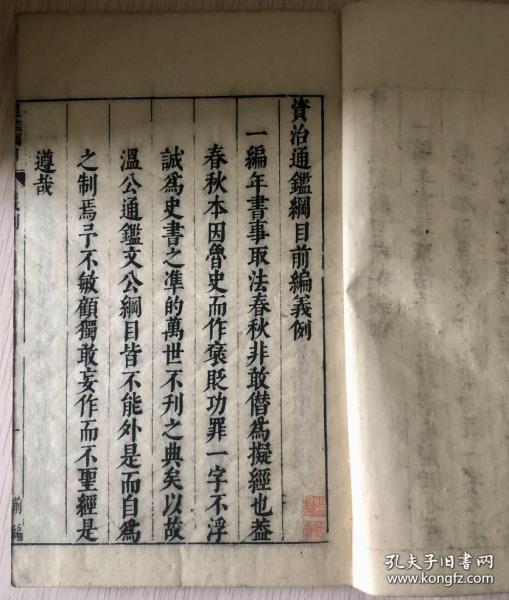 資治通鑑綱目前編義例
一編年書事取法春秋非敢僭爲擬經也葢
春秋本因魯史而作褒貶功罪一字不浮
誠爲史書之準的萬世不刋之典矣以故
溫公通鑑文公綱目皆不能外是而自爲
之制焉予不敏顧獨敢妄作而不聖經是
遵哉
前編
孔夫子旧书网
www.kongfz.com